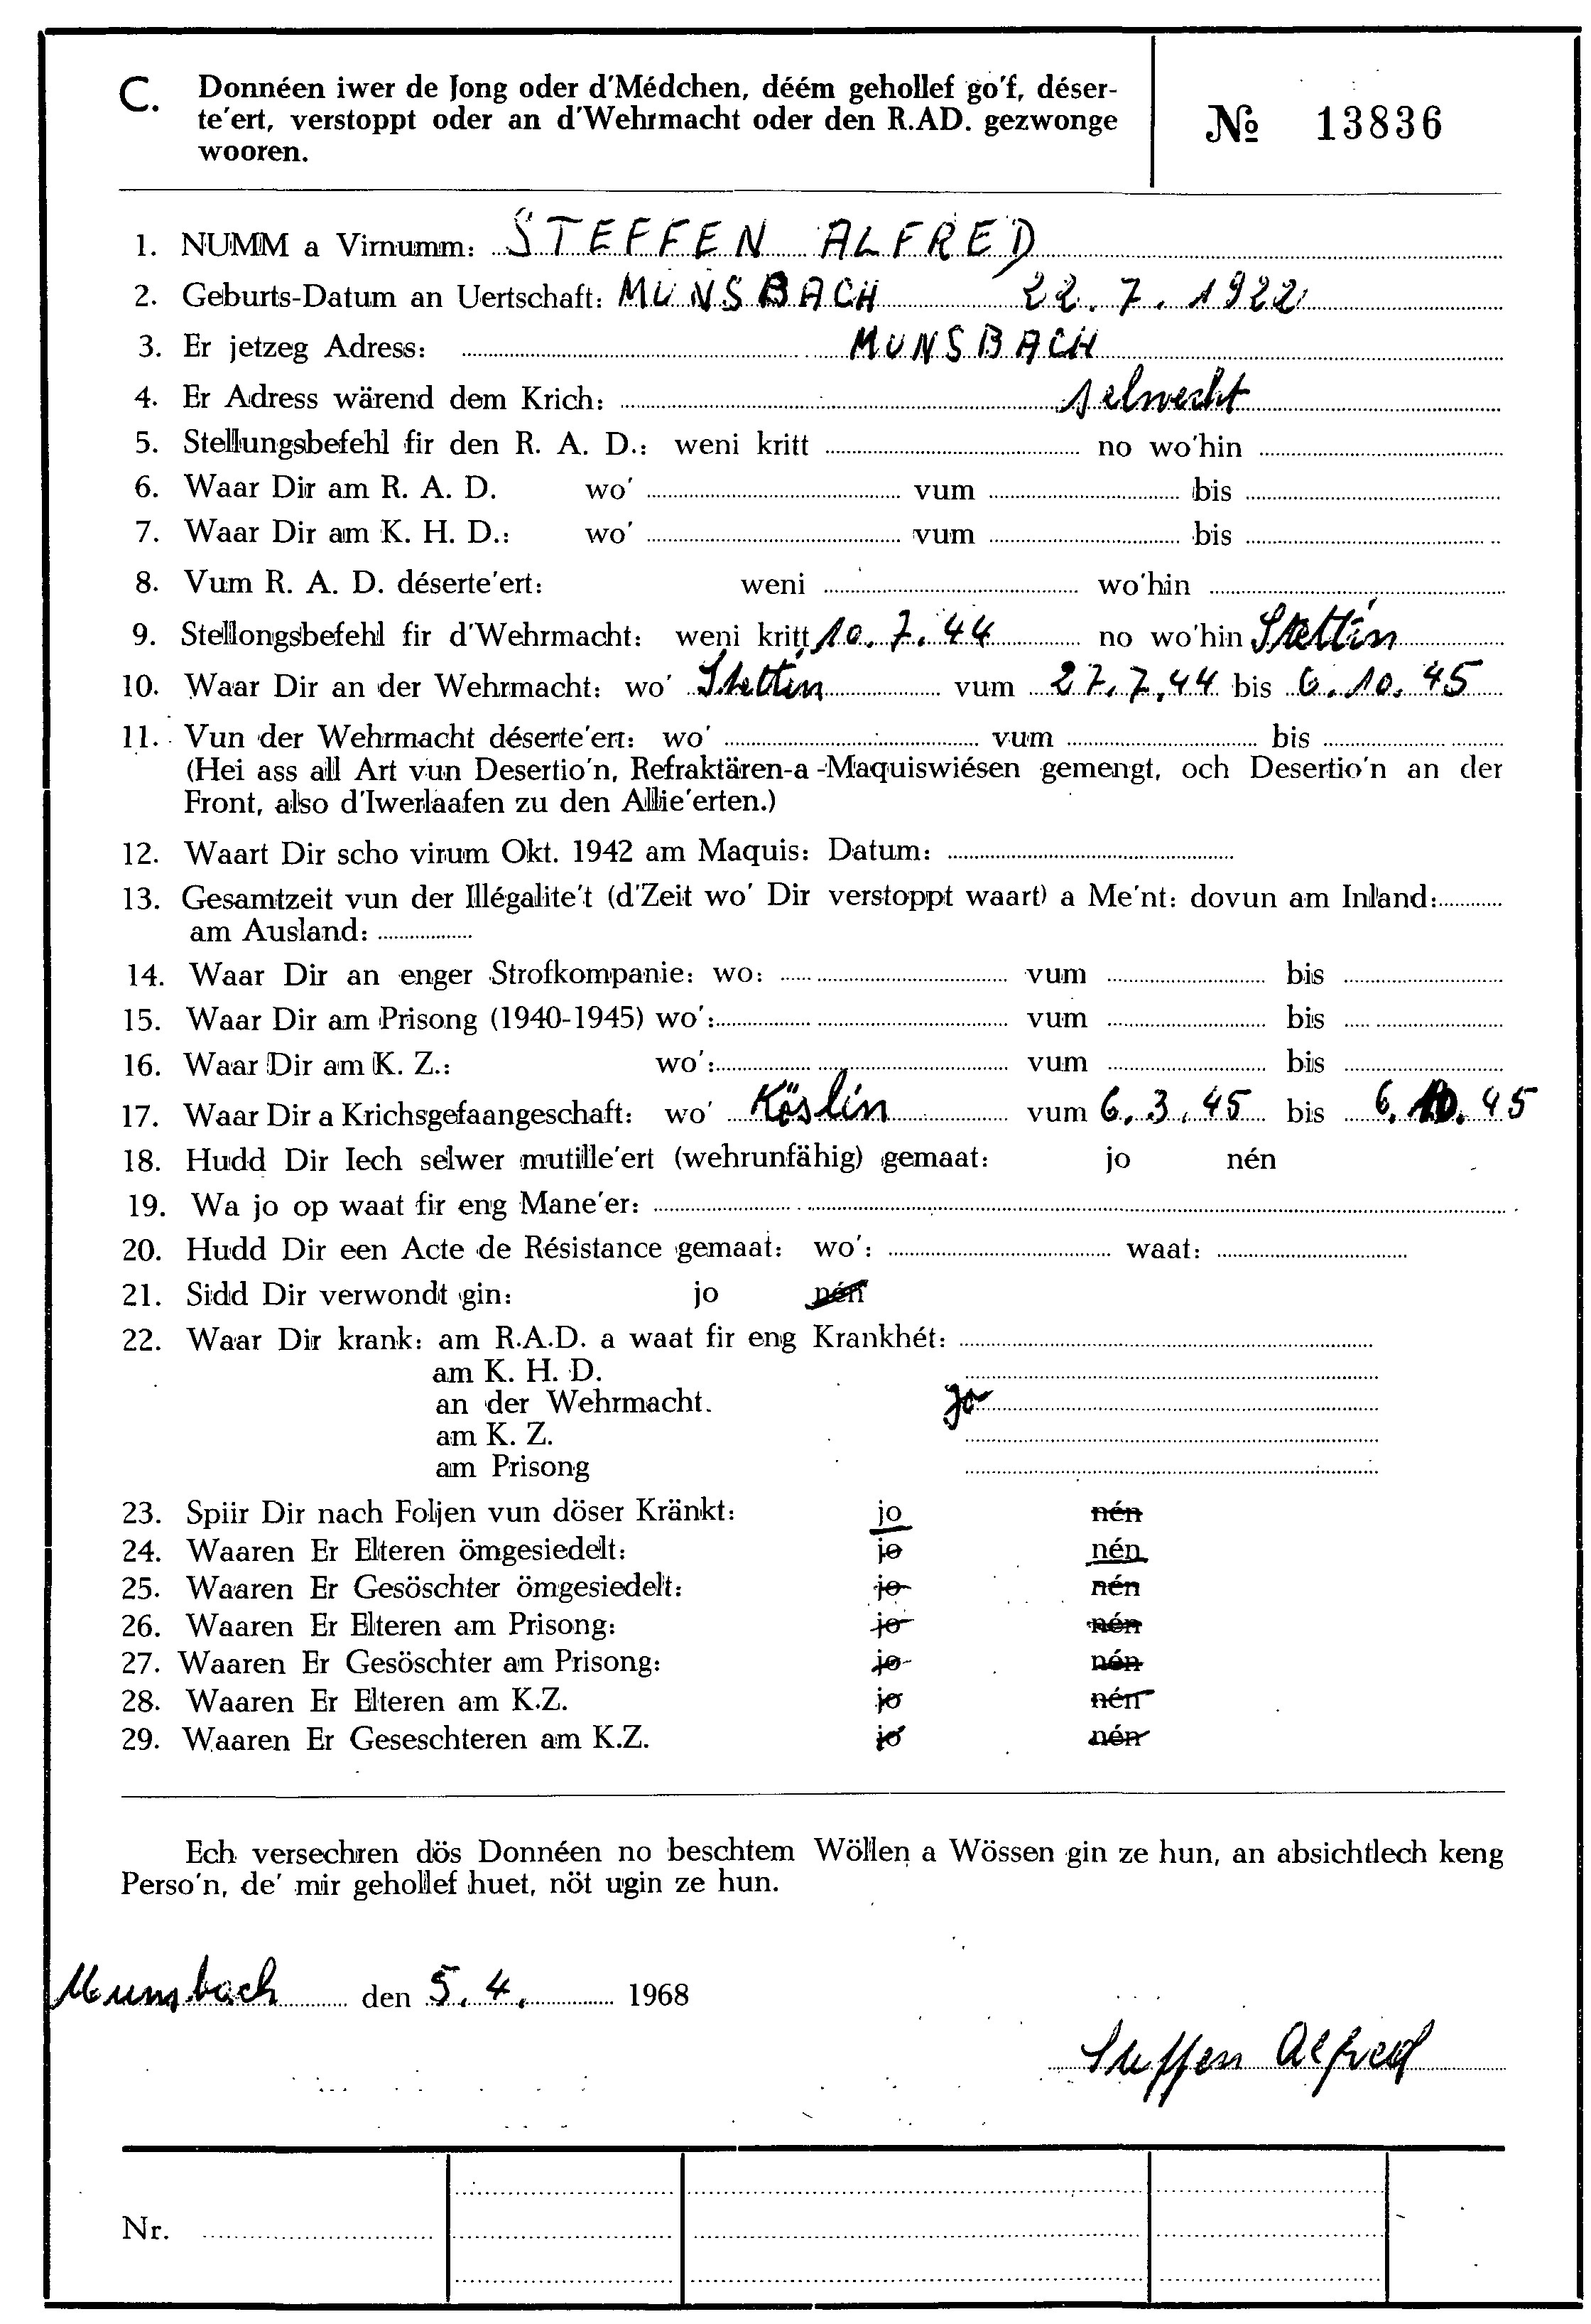 C. Donnéen iwer de Jong oder d'Médchen, déém gehollef go'f, déser-
te'ert, verstoppt oder an d'Wehrmacht oder den R.AD. gezwonge
wooren.
№ 13836
1. NUMM a Virnumm: STEFFEN ALFRED
2. Geburts-Datum an Uertschaft: MUNSBACH 22.7.1922
3. Er jetzeg Adress: MUNSBACH
4. Er Adress wärend dem Krich:
5. Stellungsbefehl fir den R. A. D.: weni kritt no wo'hin
6. Waar Dir am R. A. D. wo' vum bis
7. Waar Dir am K. H. D.: wo' vum bis
8. Vum R. A. D. déserte'ert: weni wo'hin
9. Stellongsbefehl fir d'Wehrmacht: weni kritt 10.7.44 no wo'hin Stettin
10. Waar Dir an der Wehrmacht: wo' Stettin vum 27.7.44 bis 6.10.45
11. Vun der Wehrmacht déserte'ert: wo' vum bis
(Hei ass all Art vun Desertio'n, Refraktären-a-Maquiswiésen gemengt, och Desertio'n an der
Front, also d'Iwerlaafen zu den Allie'erten.)
12. Waart Dir scho virum Okt. 1942 am Maquis: Datum:
13. Gesamtzeit vun der Illégalite't (d'Zeit wo' Dir verstoppt waart) a Me'nt: dovun am Inland:
am Ausland:
14. Waar Dir an enger Strofkompanie: wo: vum bis
15. Waar Dir am Prisong (1940-1945) wo': vum bis
16. Waar Dir am K. Z.: wo': vum bis
17. Waar Dir a Krichsgefaangeschaft: wo' Köslin vum 6.3.45 bis 6.10.45
18. Hudd Dir Iech selwer mutille'ert (wehrunfähig) gemaat: jo nén
19. Wa jo op waat fir eng Mane'er:
20. Hudd Dir een Acte de Résistance gemaat: wo': waat:
21. Sidd Dir verwondt gin: jo nén
22. Waar Dir krank: am R.A.D. a waat fir eng Krankhét:
am K. H. D.
an der Wehrmacht. Jo
am K. Z.
am Prisong
23. Spiir Dir nach Foljen vun döser Kränkt: jo nén
24. Waaren Er Elteren ömgesiedelt: jo nén
25. Waaren Er Gesöschter ömgesiedelt: jo nén
26. Waaren Er Elteren am Prisong: jo nén
27. Waaren Er Gesöschter am Prisong: jo nén
28. Waaren Er Elteren am K.Z. jo nén
29. Waaren Er Geseschteren am K.Z. jo nén
Ech versechren dös Donnéen no beschtem Wöllen a Wössen gin ze hun, an absichtlech keng
Perso'n, de' mir gehollef huet, nöt ugin ze hun.
Munsbach den 5.4. 1968
Steffen Alfred
Nr.